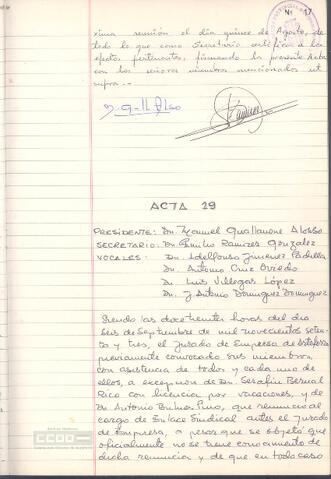 Nº 17
xima reunión el día quince de Agosto, de
todo lo que como Secretario certifico a los
efectos pertinentes, firmando la presente Acta
con los señores miembros mencionados ut
supra.-
ACTA 29
PRESIDENTE: Dn. Manuel Guallanone Alosso
SECRETARIO: Dn. Camilo Ramires Gonzalez
VOCALES.- Dn. Ildelfonso Jimenez Padilla
Dn. Antonio Cruz Ovzedo
Dn. Luis Villegas López
Dn. J. Antonio Dominguez Dominguez
Siendo las doce treinta horas del día
seis de Septiembre de mil novecientos seten-
ta y tres, el Jurado de Empresa de
previamente convocado sus miembros,
con asistencia de todos y cada uno de
ellos, a excepción de Dn. Serafín Bernal
Rico con licencia por vacaciones, y de
Dn Antonio Pino, que renunció al
cargo de Enlace Sindical antes el Jurado
de Empresa, a pesar que se objetó que
oficialmente no se tiene conocimiento de
dicha renuncia y de que en todo caso
CCOO